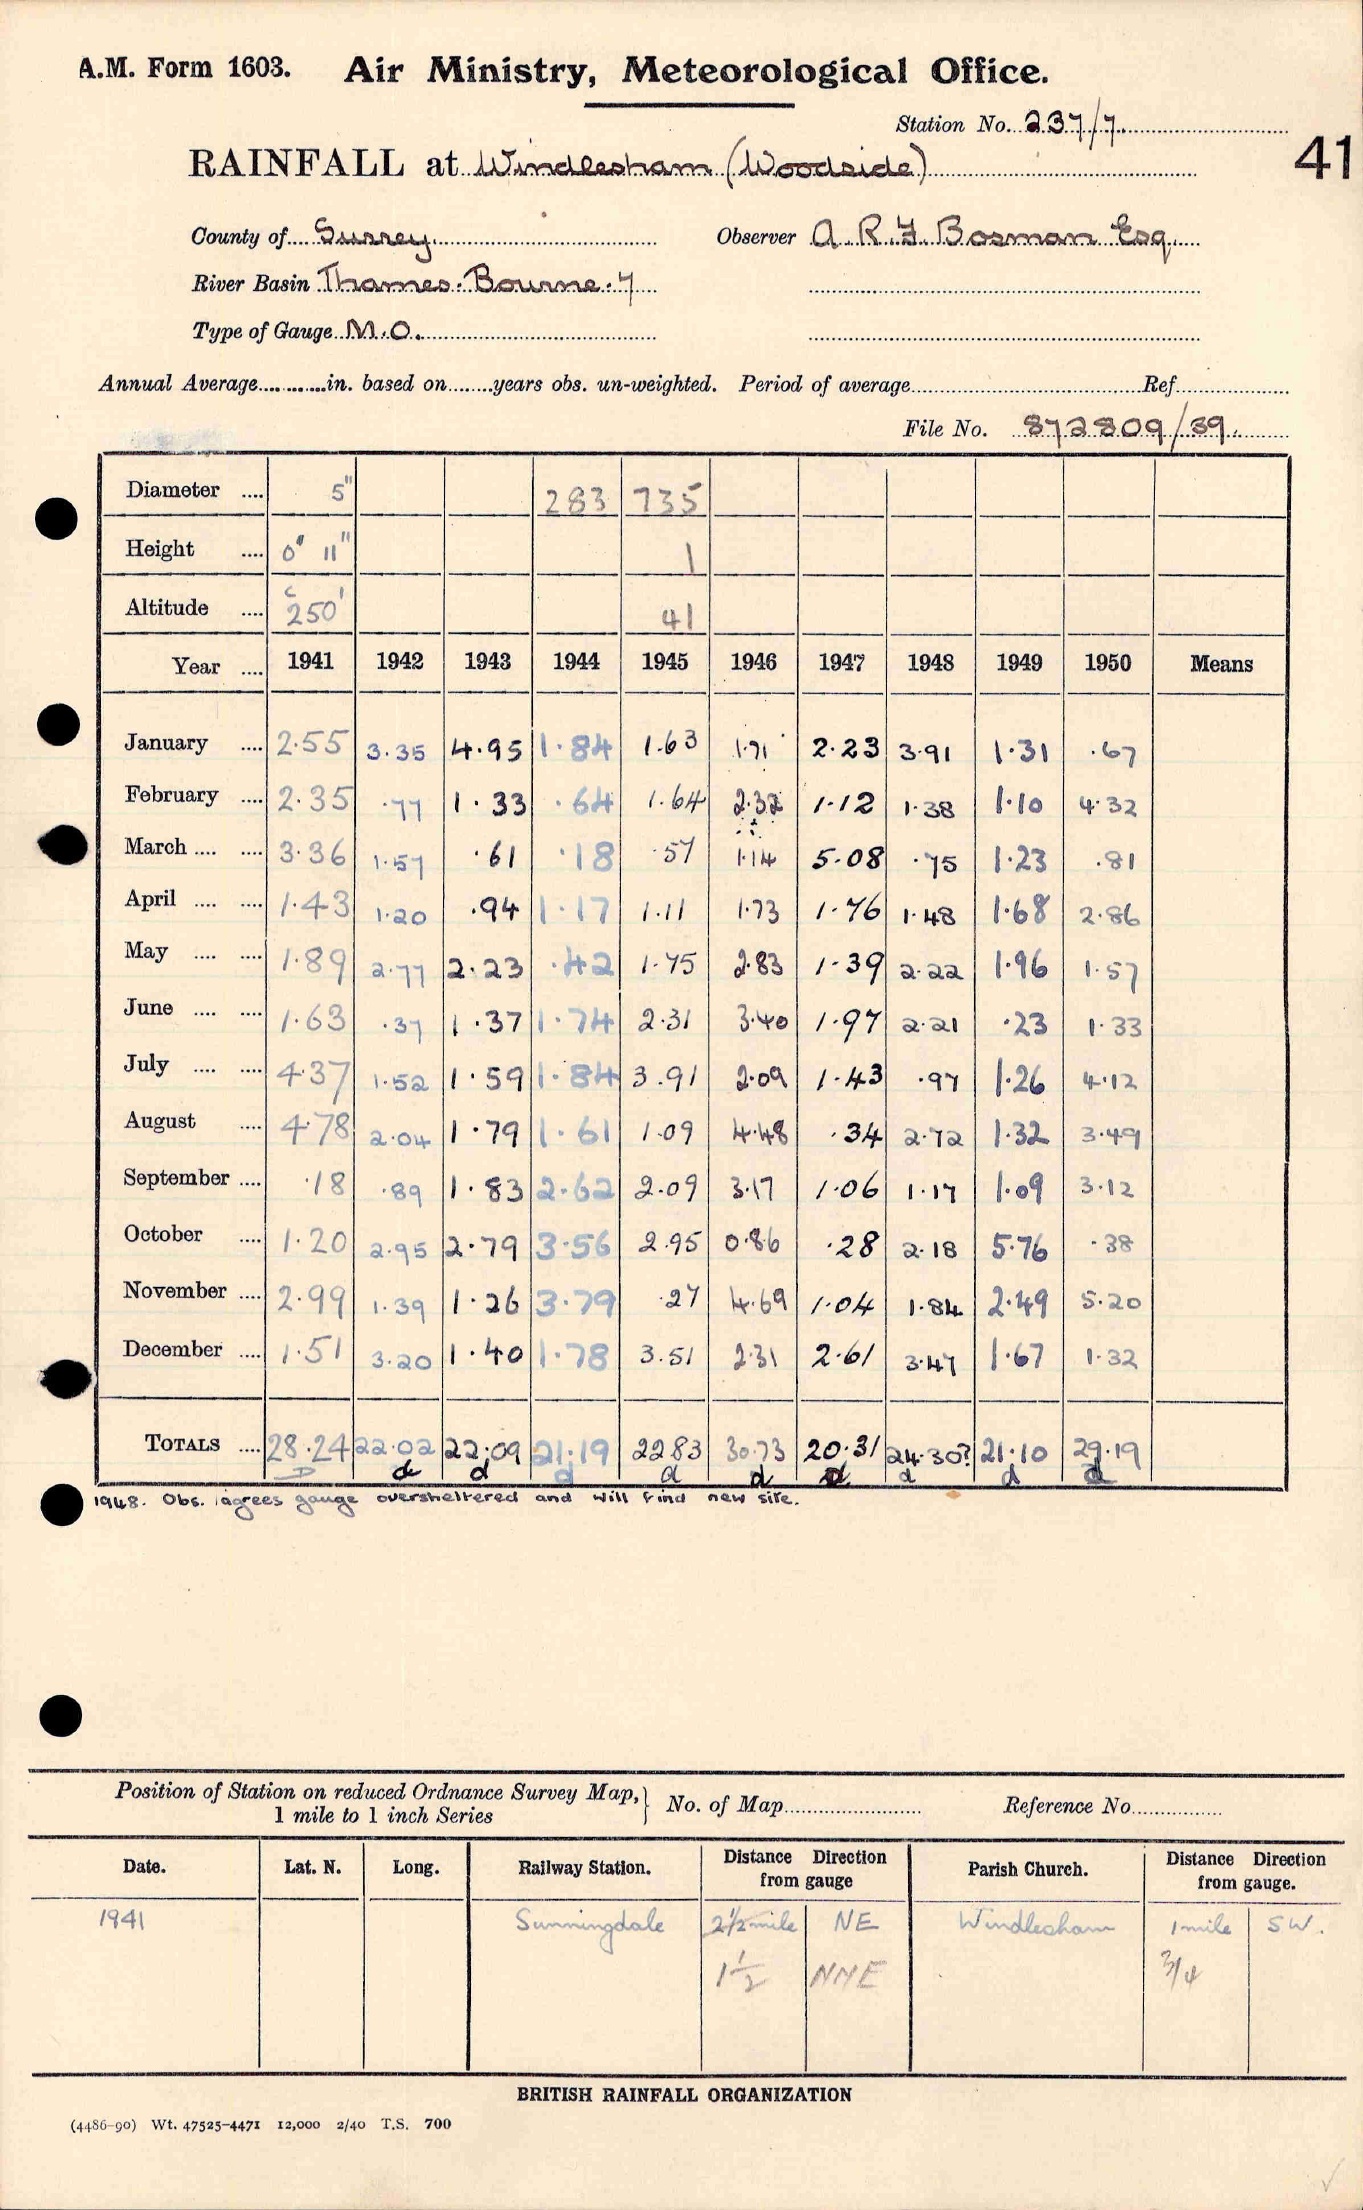 A.M. Form 1603. Air Ministry, Meteorological Office.
Station No. 237/7.
41
RAINFALL at Windlesham (Woodside)
County of Surrey Observer A. R. F. Bosman Esq.
River Basin Thames. Bourne. 7
Type of Gauge M.O.
Annual Average in. based on years obs. un-weighted. Period of average Ref
File No. 872809/39.
Diameter 5" 283 735
Height 0' 11" 1
Altitude c 250' 41
Year 1941 1942 1943 1944 1945 1946 1947 1948 1949 1950 Means
January 2.55 3.35 4.95 1.84 1.63 1.71 2.23 3.91 1.31 .67
February 2.35 .77 1.33 .64 1.64 2.32 1.12 1.38 1.10 4.32
March 3.36 1.57 .61 .18 .57 1.14 5.08 .75 1.23 .81
April 1.43 1.20 .94 1.17 1.11 1.73 1.76 1.48 1.68 2.86
May 1.89 2.77 2.23 .42 1.75 2.83 1.39 2.22 1.96 1.57
June 1.63 .37 1.37 1.74 2.31 3.40 1.97 2.21 .23 1.33
July 4.37 1.52 1.59 1.84 3.91 2.09 1.43 .97 1.26 4.12
August 4.78 2.04 1.79 1.61 1.09 4.48 .34 2.72 1.32 3.49
September .18 .89 1.83 2.62 2.09 3.17 1.06 1.17 1.09 3.12
October 1.20 2.95 2.79 3.56 2.95 0.86 .28 2.18 5.76 .38
November 2.99 1.39 1.26 3.79 .27 4.69 1.04 1.84 2.49 5.20
December 1.51 3.20 1.40 1.78 3.51 2.31 2.61 3.47 1.67 1.32
TOTALS 28.24 22.02 22.09 21.19 22.83 30.73 20.31 24.30? 21.10 29.19
D d d d d d d d d d
1948. Obs. agrees gauge oversheltered and will find new site.
Position of Station on reduced Ordnance Survey Map, 1 mile to 1 inch Series } No. of Map Reference No
Date. Lat. N. Long. Railway Station. Distance Direction from gauge Parish Church. Distance Direction from gauge.
1941 Sunningdale 2½ mile NE Windlesham 1 mile SW.
1½ NNE 3/4
BRITISH RAINFALL ORGANIZATION
(4486-90) Wt. 47525-4471 12,000 2/40 T.S. 700